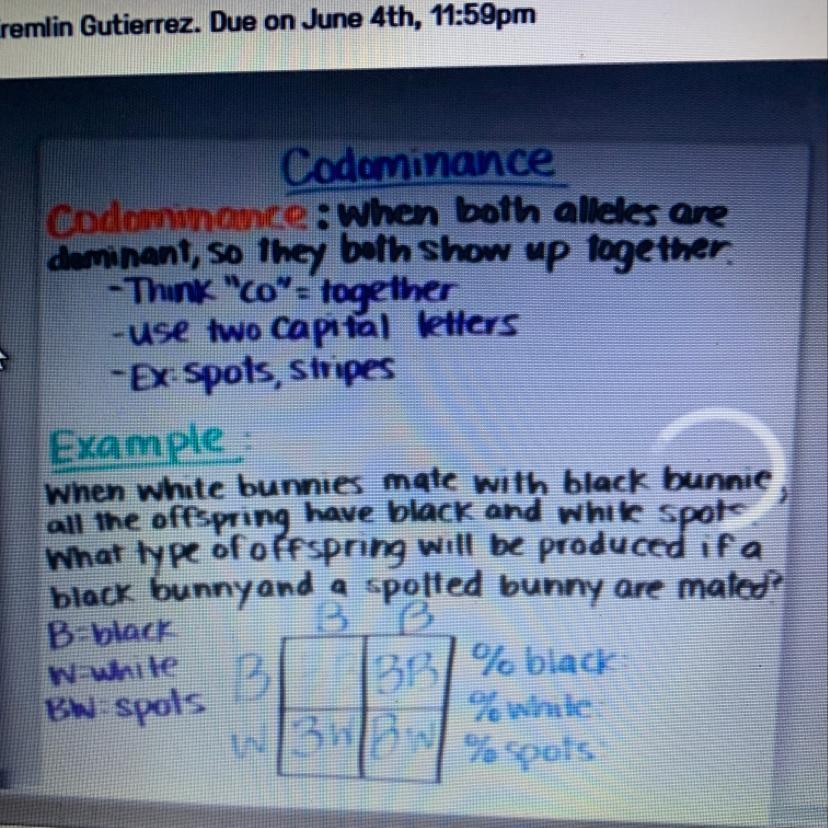 remlin Gutierrez. Due on June 4th, 11:59pm
Codominance
Codominance: when both alleles are
dominant, so they both show up together.
-Think "co" = together
-use two capital letters
-Ex: spots, stripes
Example:
When white bunnies mate with black bunnie,
all the offspring have black and white spots
What type of offspring will be produced if a
black bunny and a spotted bunny are mated?
B=black
W=white
BW=spots
B B
B BB
W BW BW
% black:
% white:
% spots: